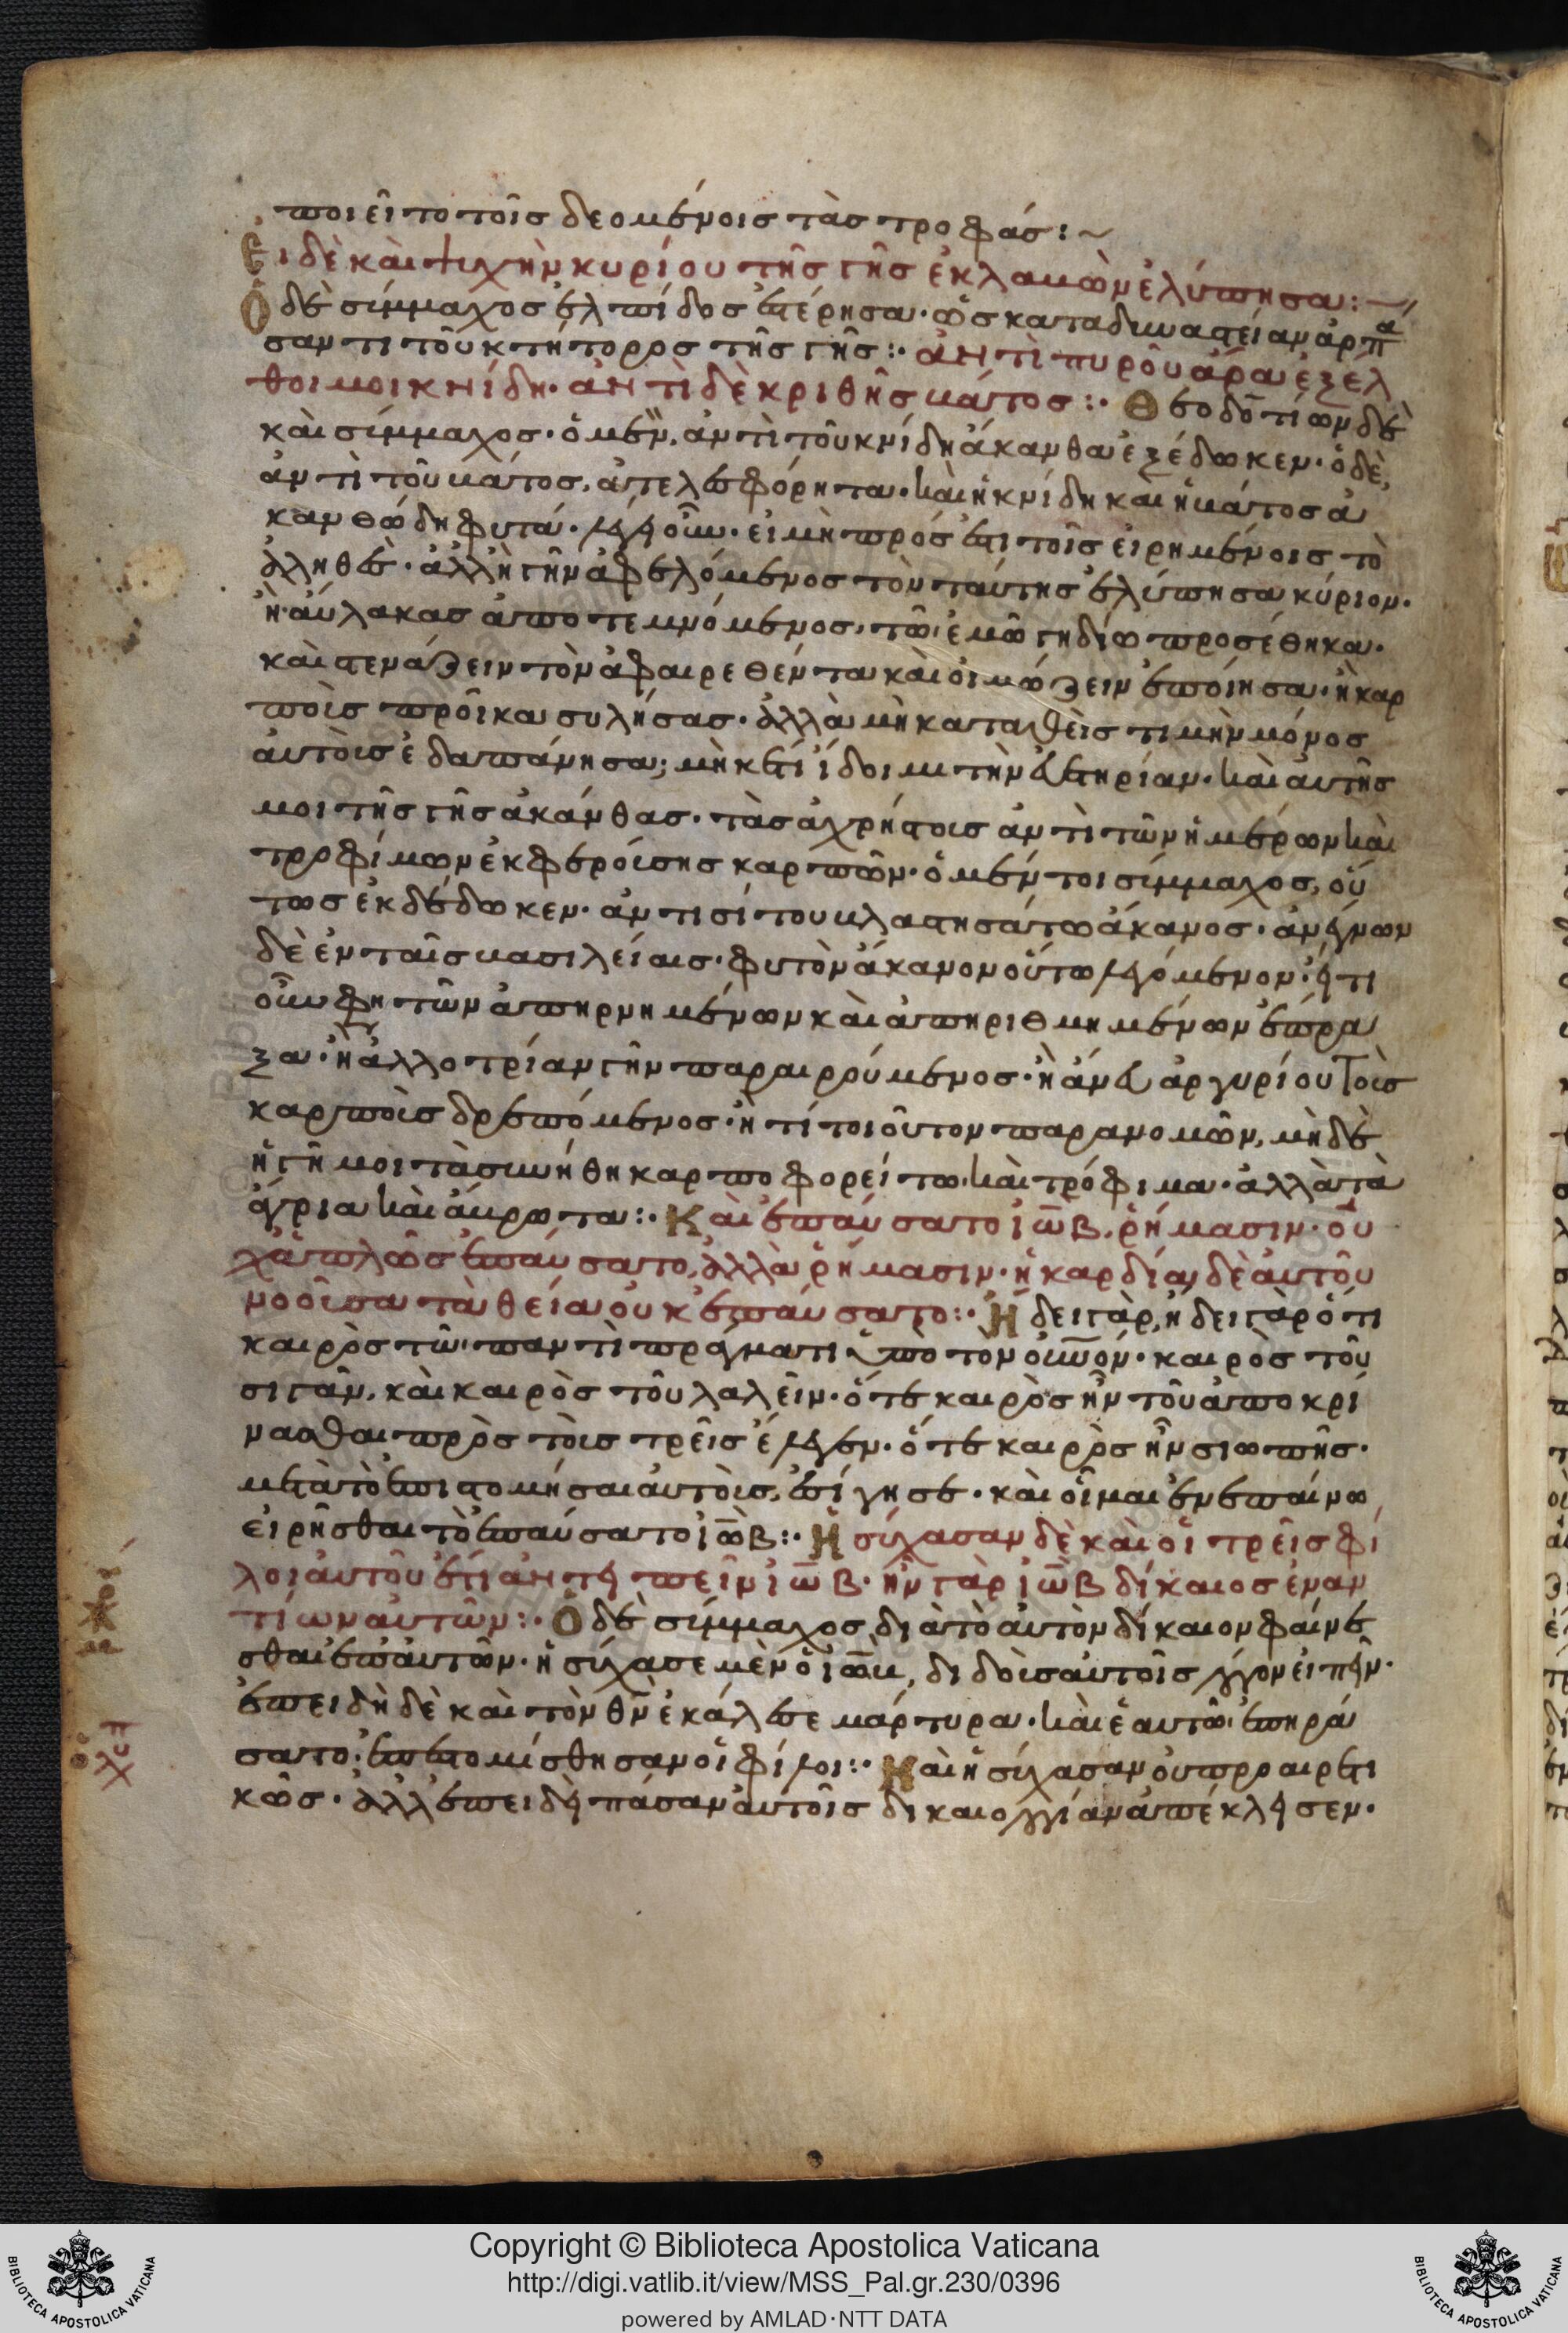 ποιεῖτο τοῖς δεομένοις τὰς τροφάς:~
Εἰ δὲ καὶ ψυχὴν κυρίου τῆς γῆς ἐκλαβὼν ἐλύπησα:~
Ὁ δὲ σύμμαχος ἐλπίδος ἐστέρησα· ὡς καταδυναστείαν ἁρπα
σαντι τοῦ κτήτορος τῆς γῆς:· ἀντὶ πυροῦ ἄρα ἐξέλ
θοι μοι κνίδη· ἀντὶ δὲ κριθῆς βάτος:· Θεοδοτίων δὲ
καὶ σύμμαχος· ὁ μὲν, ἀντὶ τοῦ κνίδη ἄκανθα ἐξέδωκεν· ὁ δὲ,
ἀντὶ τοῦ βάτος, ἀτελεσφόρητα· καὶ ἡ κνίδη καὶ ἡ βάτος ἀ
κανθώδη φυτά· λέγει οὖν· εἰ μὴ πρόσεστι τοῖς εἰρημένοις τὸ
ἀληθὲς· ἀλλ' ἢ γῆν ἀφελόμενος τὸν ταύτης ἐλύπησα κύριον·
ἢ αὔλακας ἀποτεμνόμενος, τῶ ἐμῶ γηδίω προσέθηκα·
καὶ στενάζειν τὸν ἀφαιρεθέντα καὶ οἰμώζειν ἐποίησα· ἢ καρ
ποὺς προῖκα συλήσας· ἀλλὰ μὴ καταθεὶς τιμὴν μόνος
αὐτοὺς ἐδαπάνησα; μὴ κτῆ ἴδοιμι τὴν εὐετηρίαν· καὶ αὐτῆς
μοι τῆς γῆς ἀκάνθας· τὰς ἀχρήστους ἀντὶ τῶν ἡμέρων καὶ
τροφίμων ἐκφερούσης καρπῶν· ὁ μέντοι σύμμαχος, οὕ
τως ἐκδέδωκεν· ἀντὶ σίτου βλαστησάτω ἄκανος· ἀνέγνων
δὲ ἐν ταῖς βασιλείαις· φυτὸν ἄκανον οὕτω λεγόμενον· εἴ τι
οὖν φη τῶν ἀπηρνημένων καὶ ἀπηριθμημένων ἔπρα
ξα· ἢ ἀλλοτρίαν γῆν παραιρούμενος· ἢ ἄνευ ἀργυρίου τοὺς
καρποὺς δρεπόμενος· ἢ τί τοιοῦτον παρανομῶν, μὴ δὲ
ἡ γῆ μοι τὰ συνήθη καρποφορείτω· καὶ τρόφιμα· ἀλλὰ τὰ
ἄγρια καὶ ἄβρωτα:· Καὶ ἐπαύσατο ἰὼβ, ῥήμασιν· οὐ
χ' ἁπλῶς ἐπαύσατο, ἀλλὰ ῥήμασιν· ἡ καρδία δὲ αὐτοῦ
νοοῦσα τὰ θεῖα οὐκ ἐπαύσατο:· Ἤδει γὰρ, ἤδει γὰρ ὅτι
καιρὸς τῶ παντὶ πράγματι ὑπὸ τὸν οὐνον· καιρὸς τοῦ
σιγᾶν, καὶ καιρὸς τοῦ λαλεῖν· ὅτε καιρὸς ἦν τοῦ ἀποκρί
νασθαι πρὸς τοὺς τρεῖς ἔλεγεν· ὅτε καιρὸς ἦν σιωπῆς·
μετὰ τὸ ἐπιστομῆσαι αὐτοὺς, ἐσίγησε· καὶ οἶμαι ἐν ἐπαίνω
εἰρῆσθαι τὸ ἐπαύσατο ἰὼβ:· Ἡσύχασαν δὲ καὶ οἱ τρεῖς φί
λοι αὐτοῦ ἔτι ἀντειπεῖν ἰὼβ· ἦν γὰρ ἰὼβ δίκαιος ἐναν
τίων αὐτῶν:· Ὁ δὲ σύμμαχος, διὰ τὸ αὐτὸν δίκαιον φαίνε
σθαι ἐπ' αὐτῶν· ἡσύχασε μὲν ὁ ἰὼβ, διδοὺς αὐτοῖς λόγον εἰπεῖν·
ἐπειδὴ δὲ καὶ τὸν θν ἐκάλεσε μάρτυρα· καὶ ἑαυτῶ ἐπηρά
σατο· ἐπεστομίσθησαν οἱ φίλοι:· Καὶ ἡσύχασαν οὐ προαιρετι
κῶς· ἀλλ' ἐπειδὴ πάσαν αὐτοῖς δικαιολογίαν ἀπέκλεισεν·
Copyright © Biblioteca Apostolica Vaticana
http://digi.vatlib.it/view/MSS_Pal.gr.230/0396
powered by AMLAD·NTT DATA
BIBLIOTECA APOSTOLICA VATICANA
BIBLIOTECA APOSTOLICA VATICANA